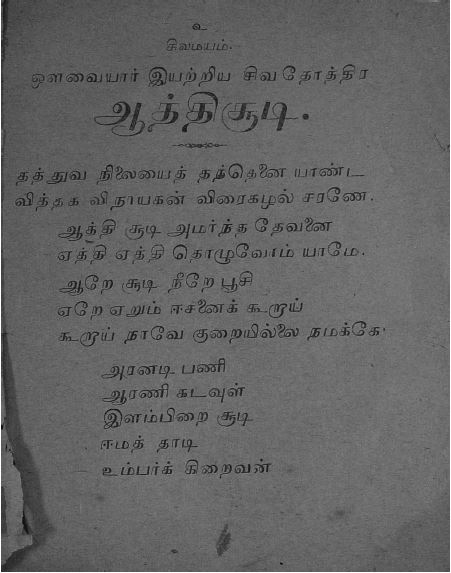 உ
சிவமயம்.
ஔவையார் இயற்றிய சிவதோத்திர
ஆத்திசூடி.
தத்துவ நிலையைத் தந்தெனை யாண்ட
வித்தக விநாயகன் விரைகழல் சரணே.
ஆத்தி சூடி அமர்ந்த தேவனை
ஏத்தி ஏத்தி தொழுவோம் யாமே.
ஆறே சூடி நீறே பூசி
ஏறே ஏறும் ஈசனைக் கூறாய்
கூறாய் நாவே குறையில்லை நமக்கே.
அரனடி பணி
ஆரணி கடவுள்
இளம்பிறை சூடி
ஈமத் தாடி
உம்பர்க் கிறைவன்